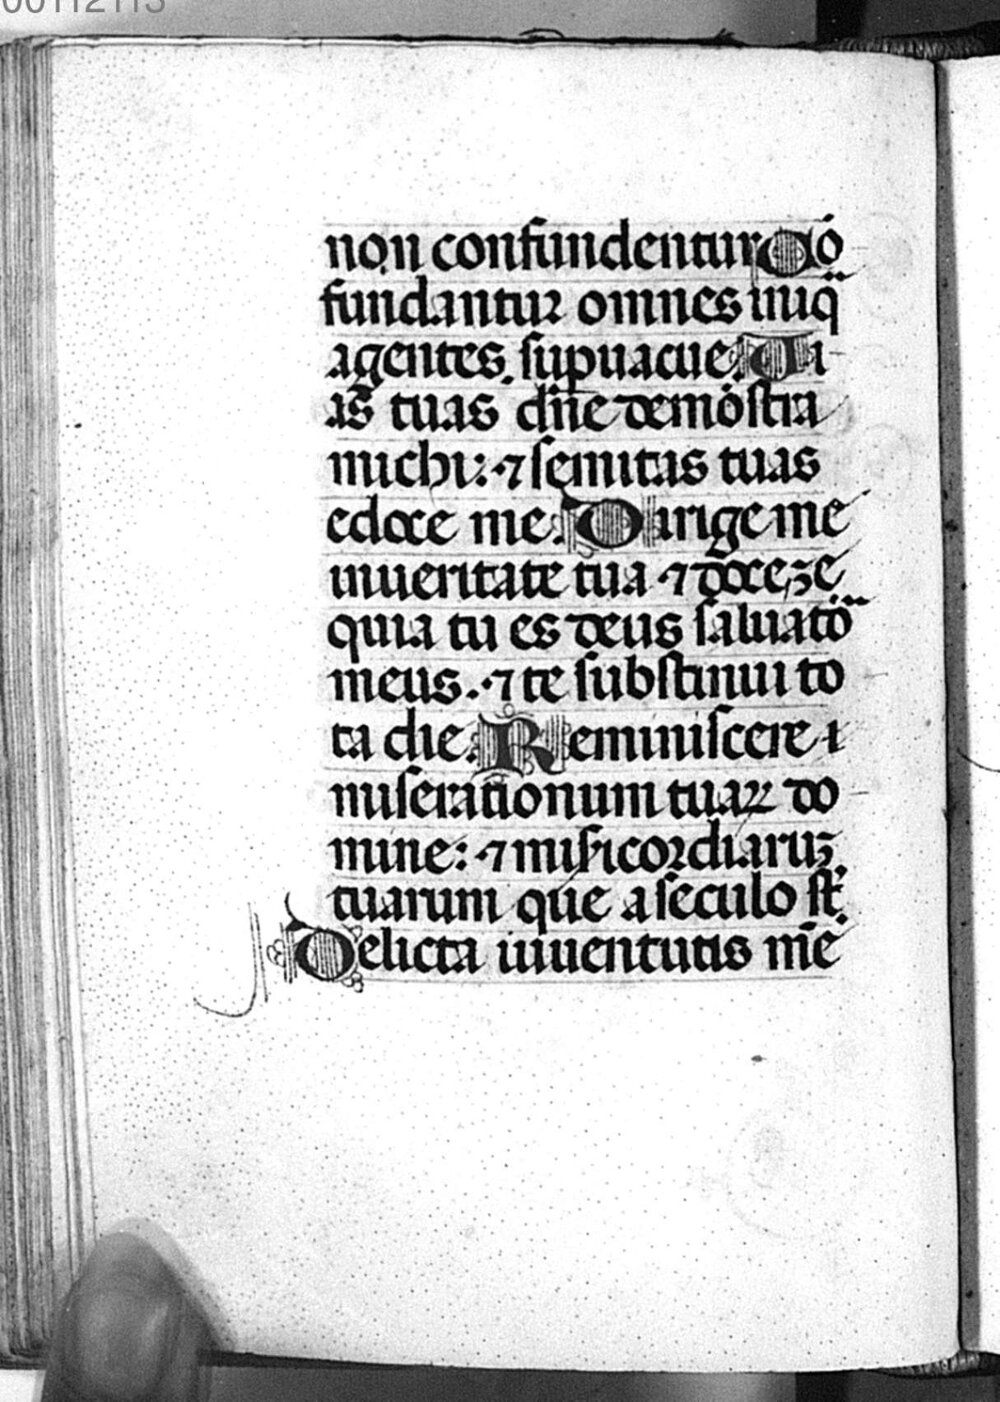 00112113
non confundentur Cō
fundantur omnes iniq̄
agentes. supuacue. Ui
as tuas dn̄e demōstra
michi: ⁊ semitas tuas
edoce me. Dirige me
in ueritate tua ⁊ doce me
quia tu es deus saluatō
meus. ⁊ te substinui to
ta die. Reminiscere
miserationum tuaꝝ do
mine: ⁊ misicordiaruꝫ
tuarum que a seculo st̄.
Delicta iuuentutis mē